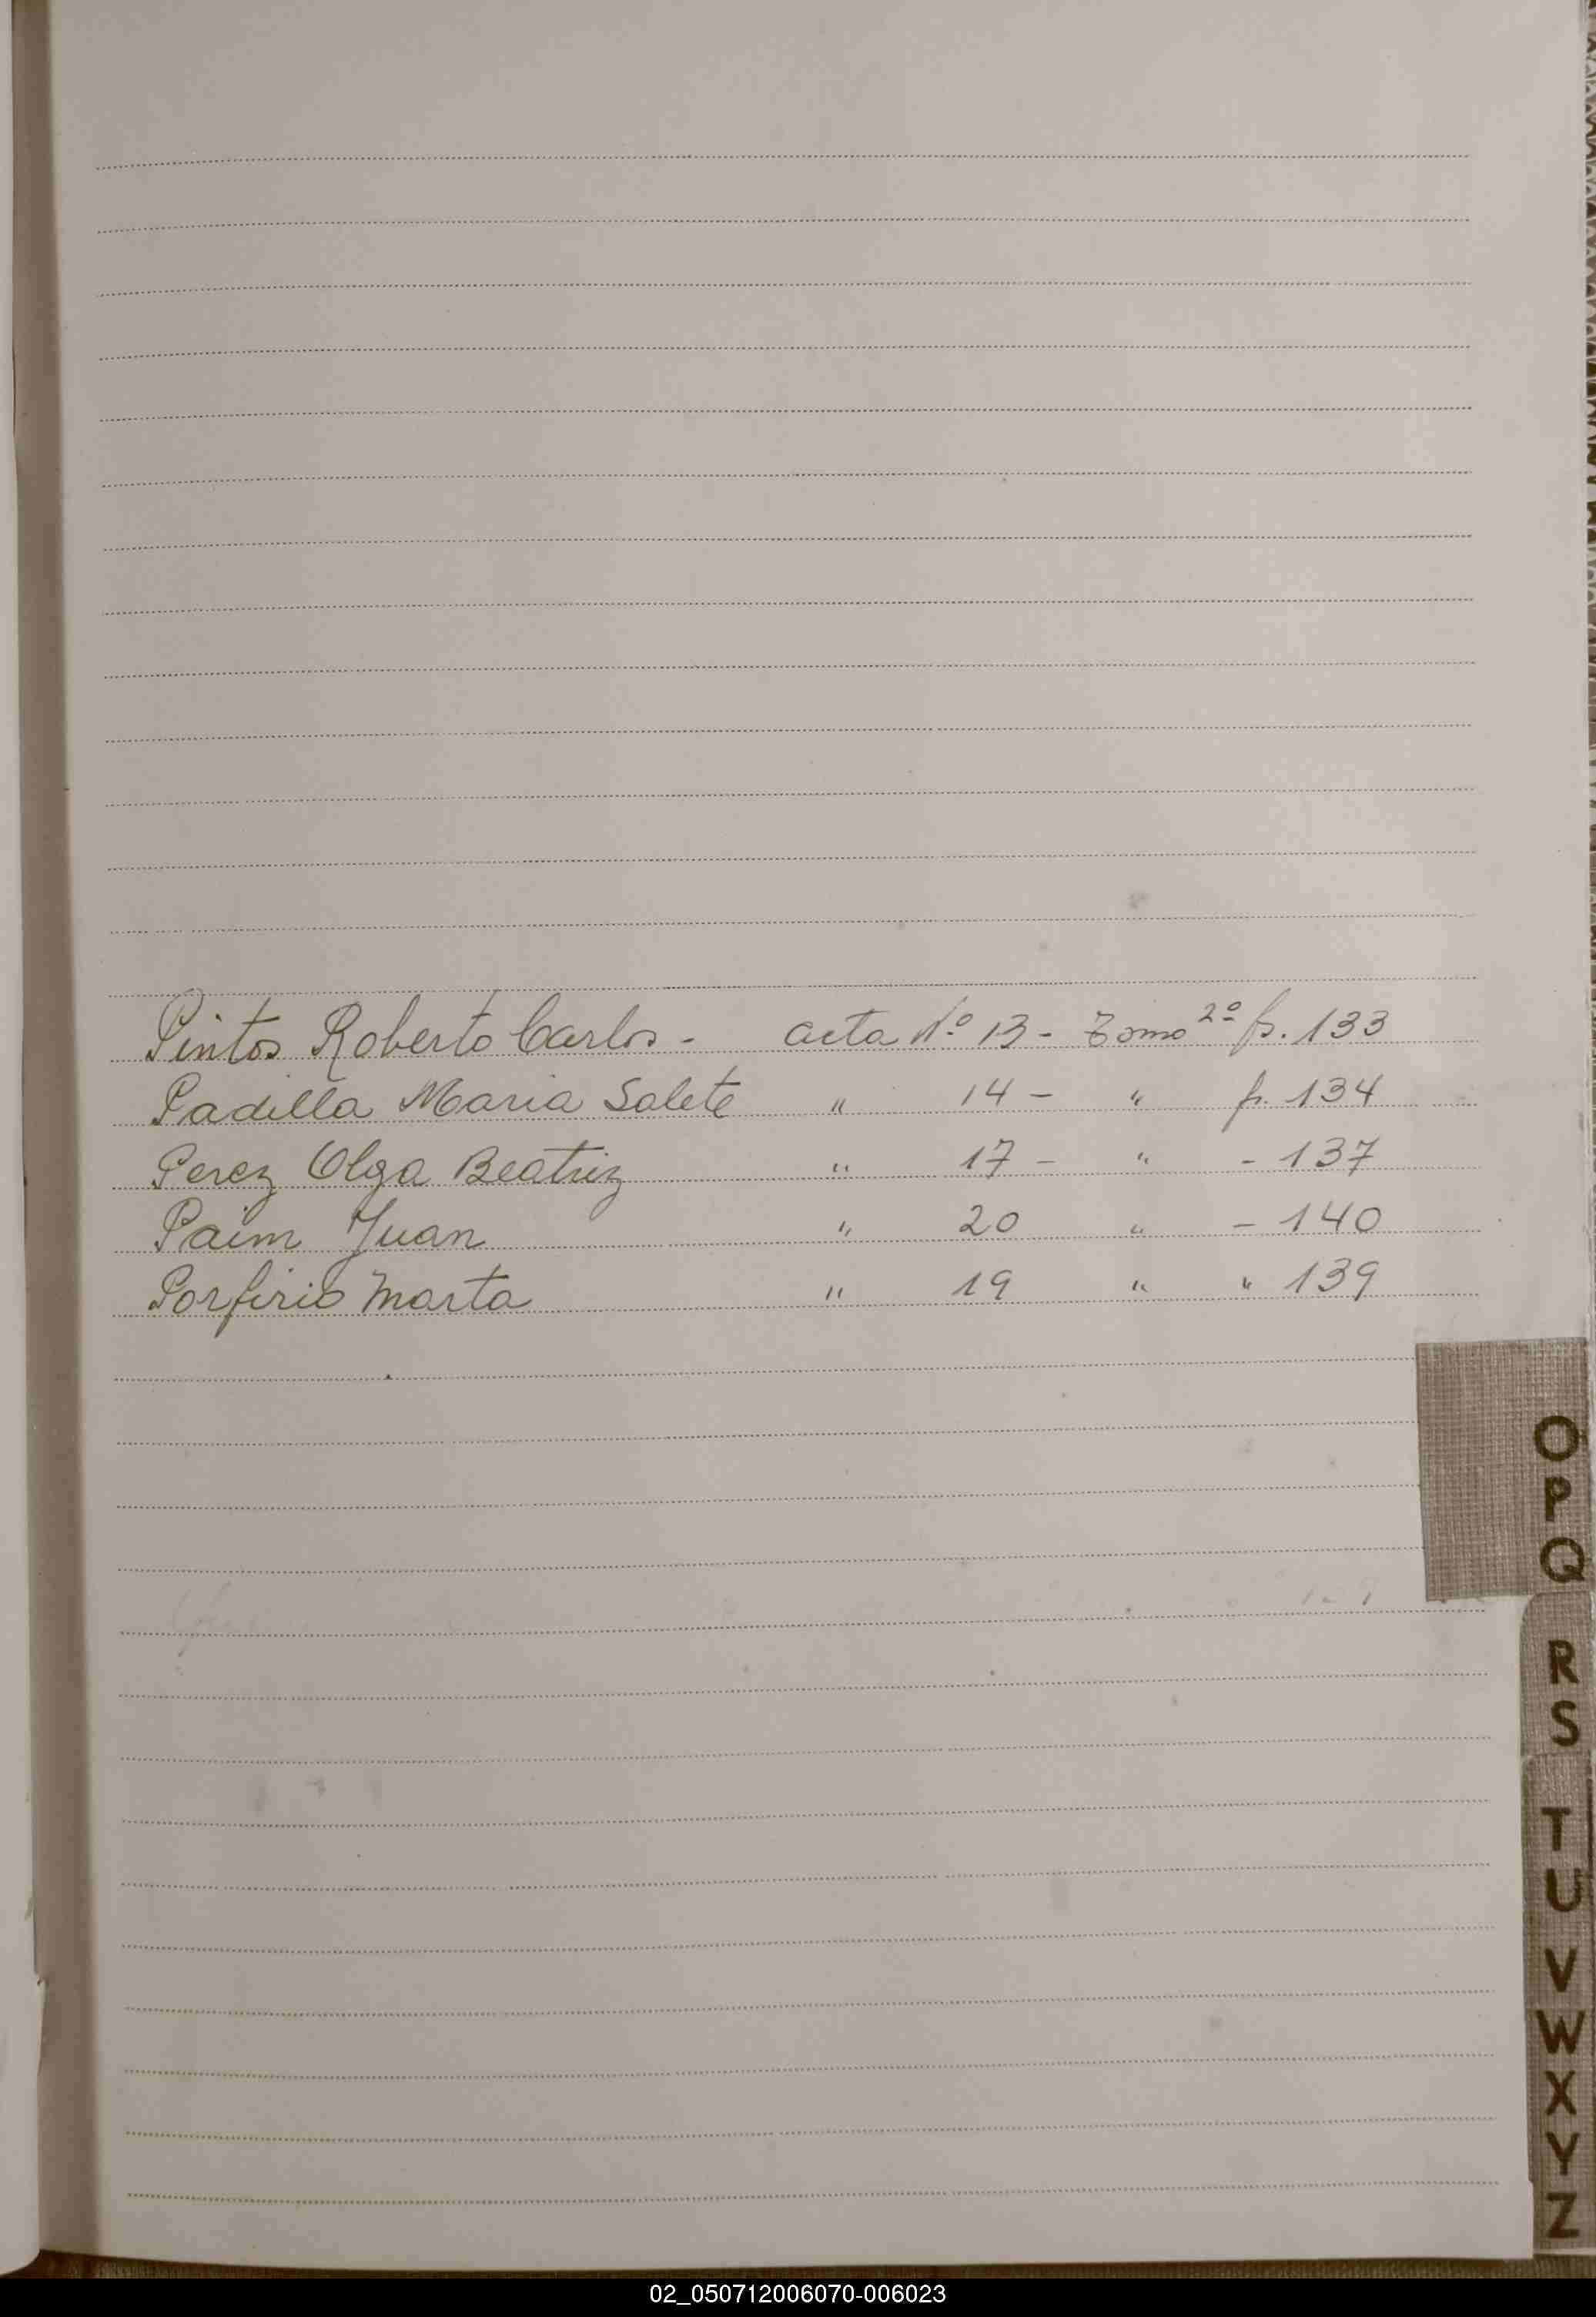 Pintos Roberto Carlos - acta Nº 13 - Tomo 2º fs. 133
Padilla Maria Salete " 14 - " fs. 134
Perez Olga Beatriz " 17 - " - 137
Paim Juan " 20 " - 140
Porfirio Marta " 19 " " 139
O
P
Q
R
S
T
U
V
W
X
Y
Z
02_050712006070-006023